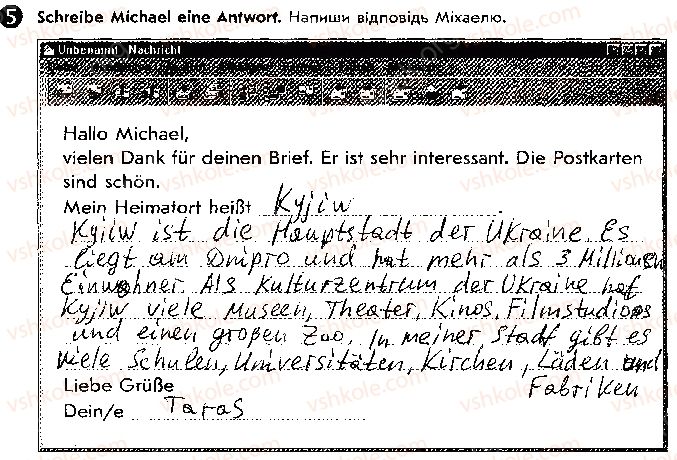 5 Schreibe Michael eine Antwort. Напиши відповідь Міхаелю.
Unbenannt - Nachricht
Hallo Michael,
vielen Dank für deinen Brief. Er ist sehr interessant. Die Postkarten
sind schön.
Mein Heimatort heißt Kyjiw.
Kyjiw ist die Hauptstadt der Ukraine. Es
liegt am Dnipro und hat mehr als 3 Millionen
Einwohner. Als Kulturzentrum der Ukraine hat
Kyjiw viele Museen, Theater, Kinos, Filmstudios
und einen großen Zoo. In meiner Stadt gibt es
viele Schulen, Universitäten, Kirchen, Läden und
Fabriken
Liebe Grüße
Dein/e Taras